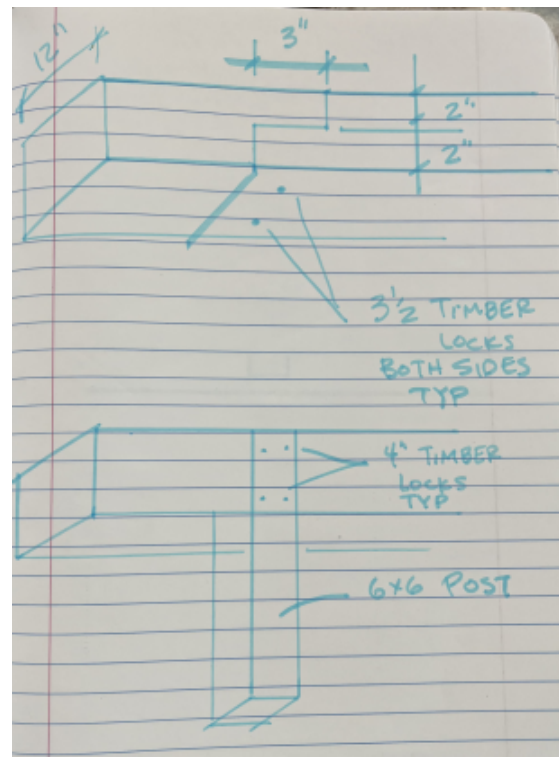 12"
3"
2"
2"
3 1/2 TIMBER
LOCKS
BOTH SIDES
TYP
4" TIMBER
LOCKS
TYP
6x6 POST